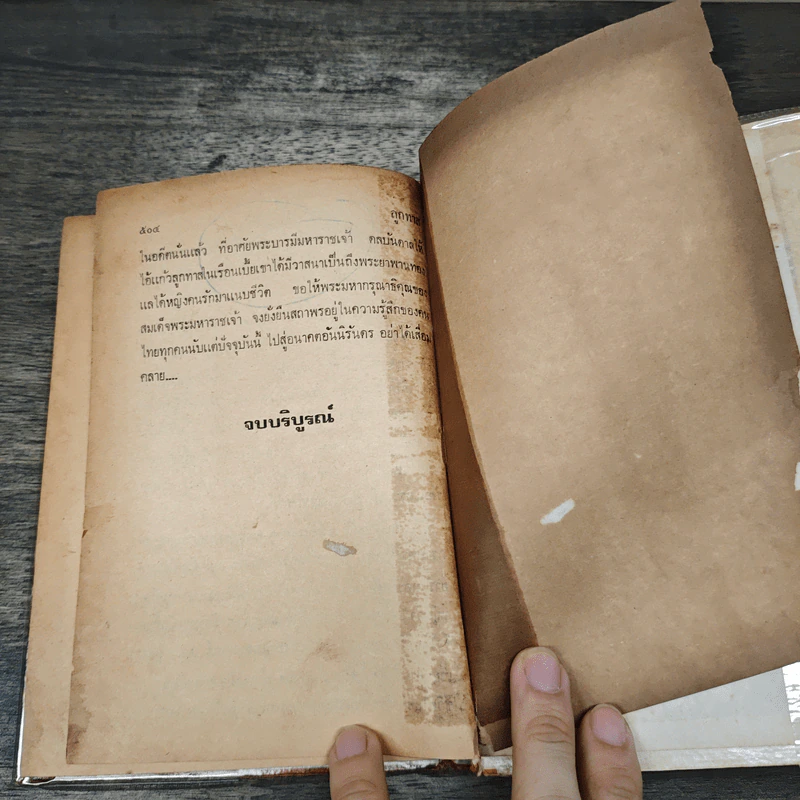 ๕๐๔
ลูกทาส
ในอดีตนั่นแล้ว ที่อาศัยพระบารมีมหาราชเจ้า ดลบันดาลให้
ไอ้แก้วลูกทาสในเรือนเบี้ยเขาได้มีวาสนาเป็นถึงพระยาพานทอง
แลได้หญิงคนรักมาแนบชีวิต ขอให้พระมหากรุณาธิคุณของ
สมเด็จพระมหาราชเจ้า จงยั่งยืนสถาพรอยู่ในความรู้สึกของ
ไทยทุกคนนับแต่ปัจจุบันนี้ ไปสู่อนาคตอันนิรันดร อย่าได้เสื่อม
คลาย....
จบบริบูรณ์